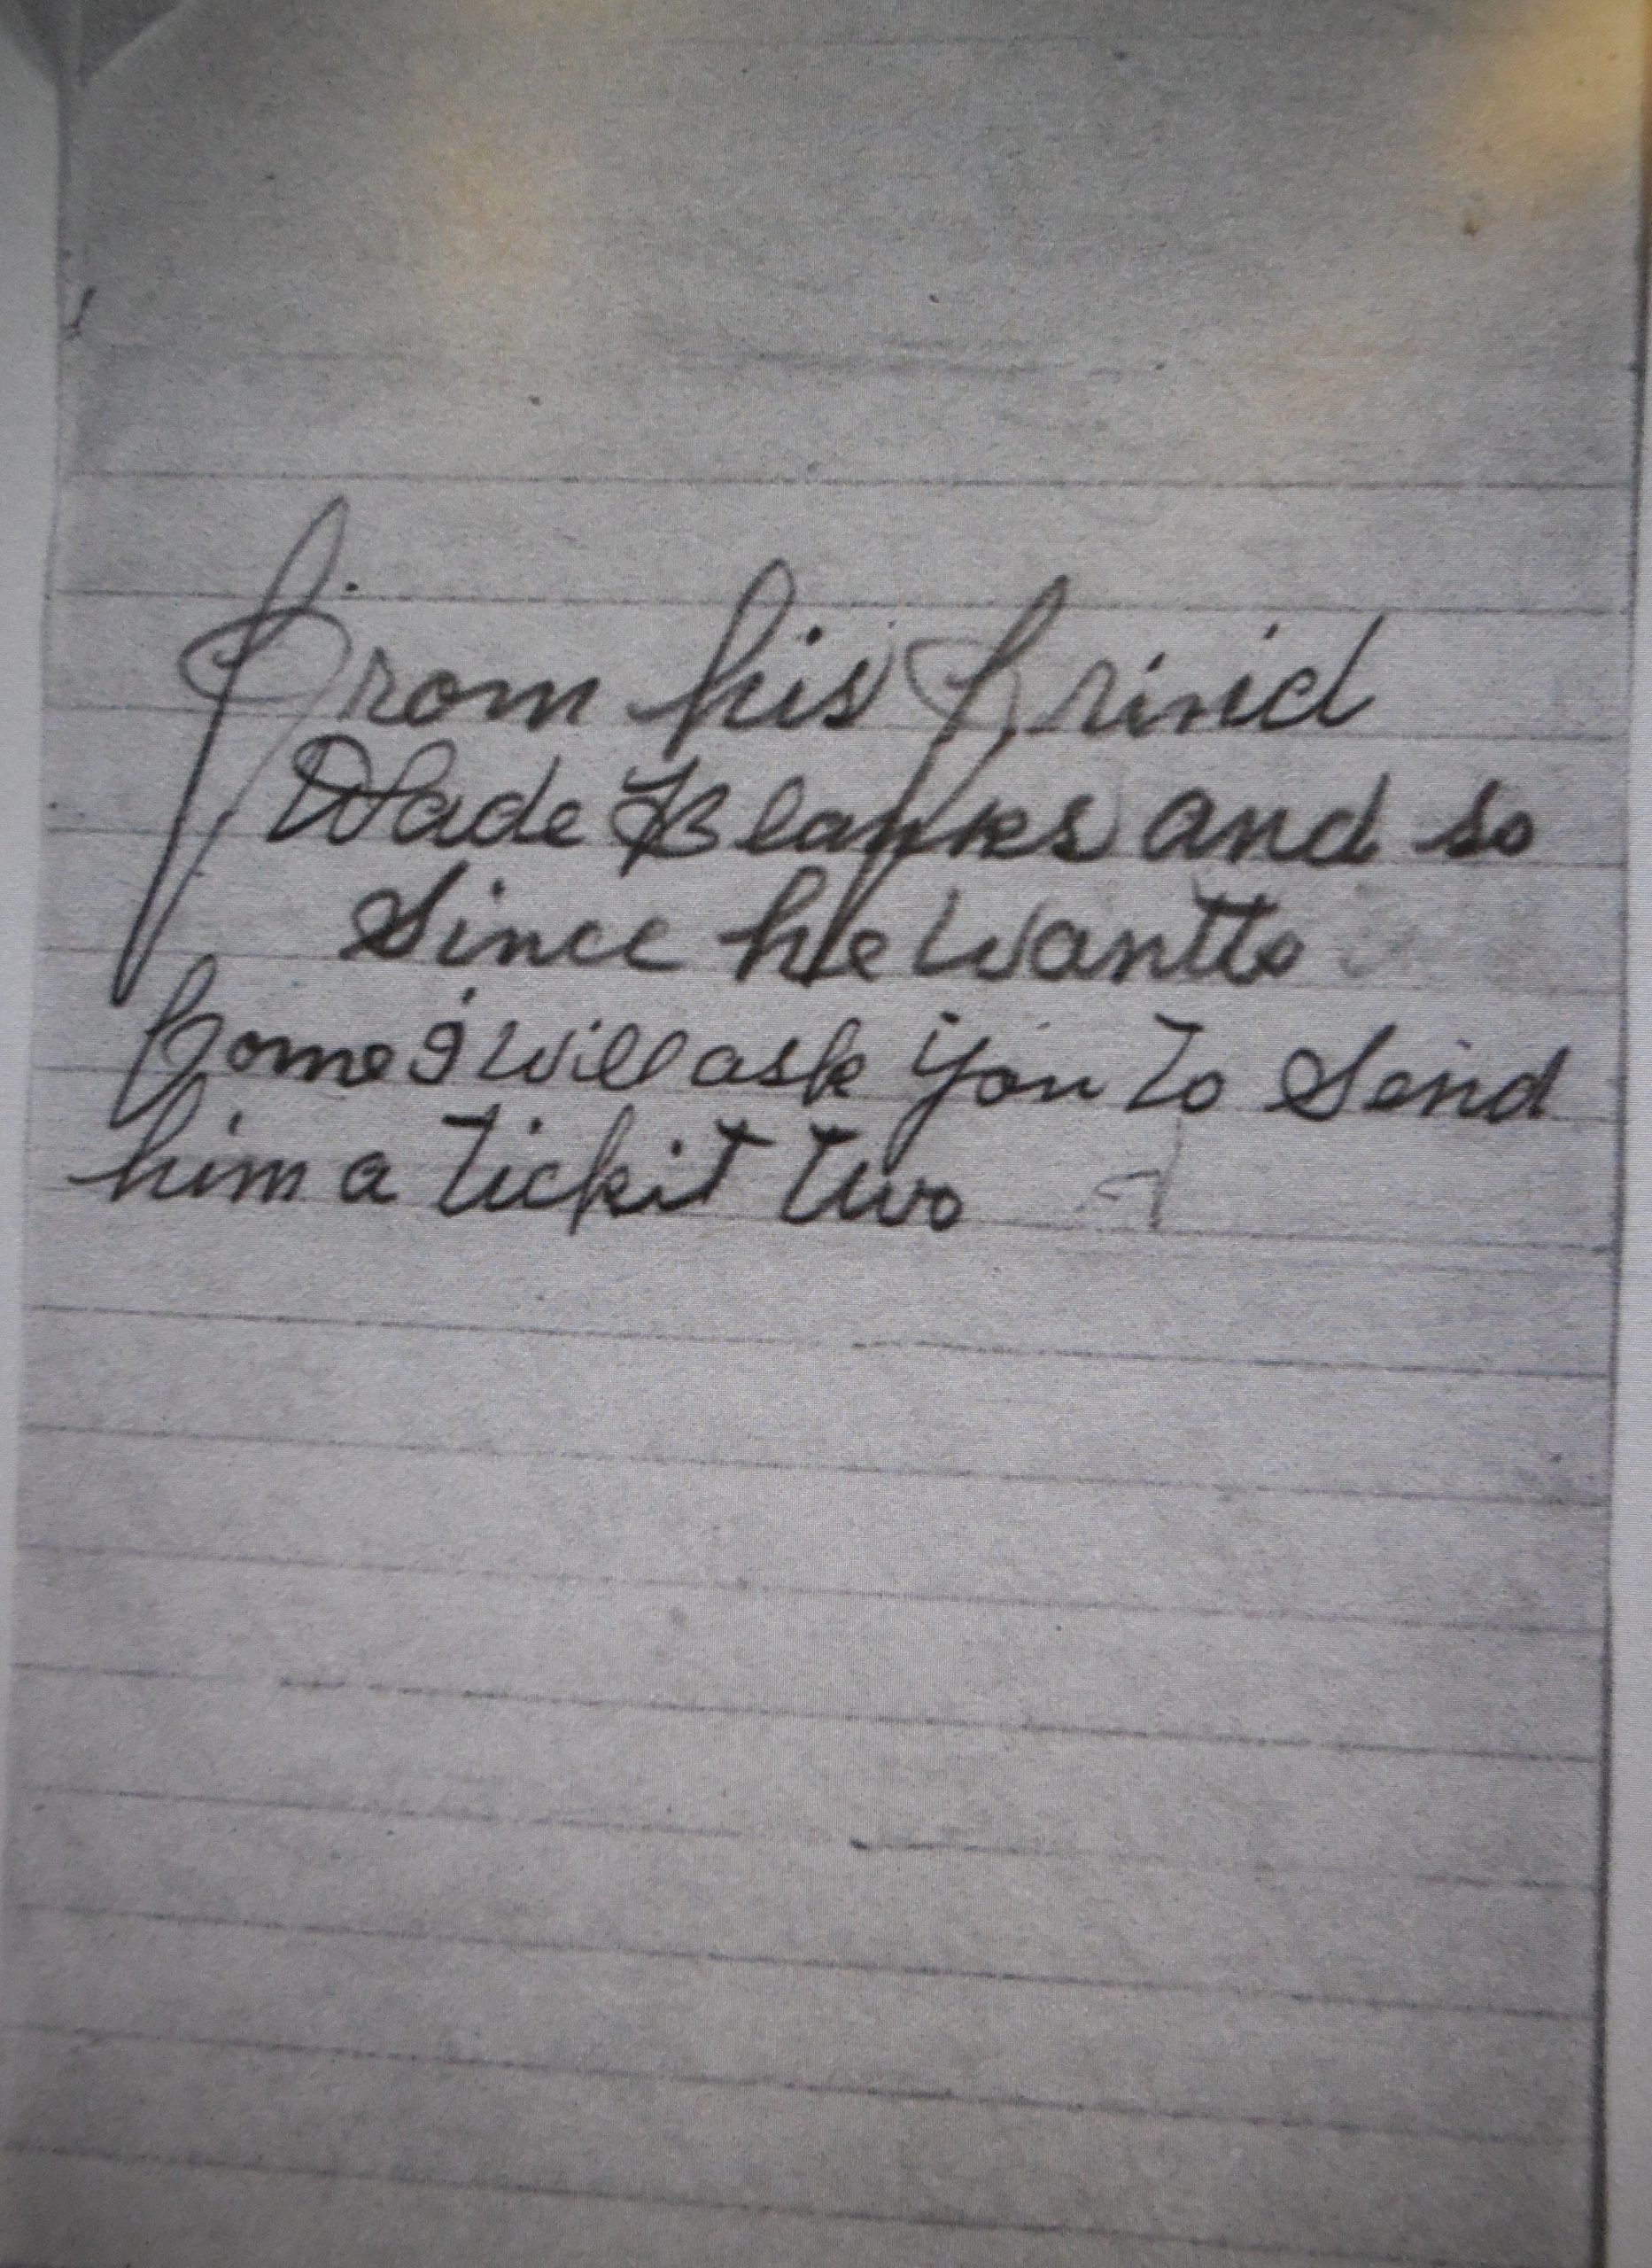 from his frind
Wade Blanks and so
Since he Wantto
Come I will ask you to Send
him a tickit two